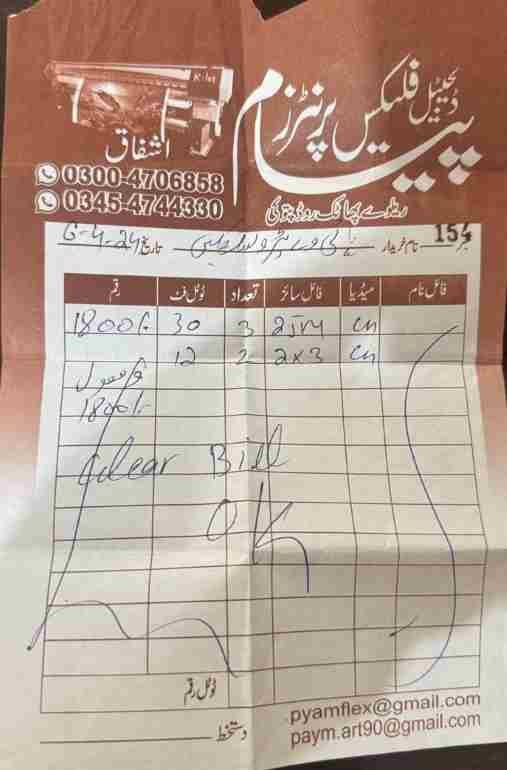 ڈیجیٹل فلیکس پرنٹرز
پیام
K-Jet
اشفاق
0300-4706858
0345-4744330
ریلوے پھاٹک روڈ پتوکی
نمبر 154
نام خریدار
تاریخ 6-4-24
فائل نام میڈیا فائل سائز تعداد ٹوٹل فٹ رقم
cn 3 30 1800/-
cn 2x3 2 12
وصول
1800/-
Clear Bill
OK
ٹوٹل رقم
دستخط
pyamflex@gmail.com
paym.art90@gmail.com